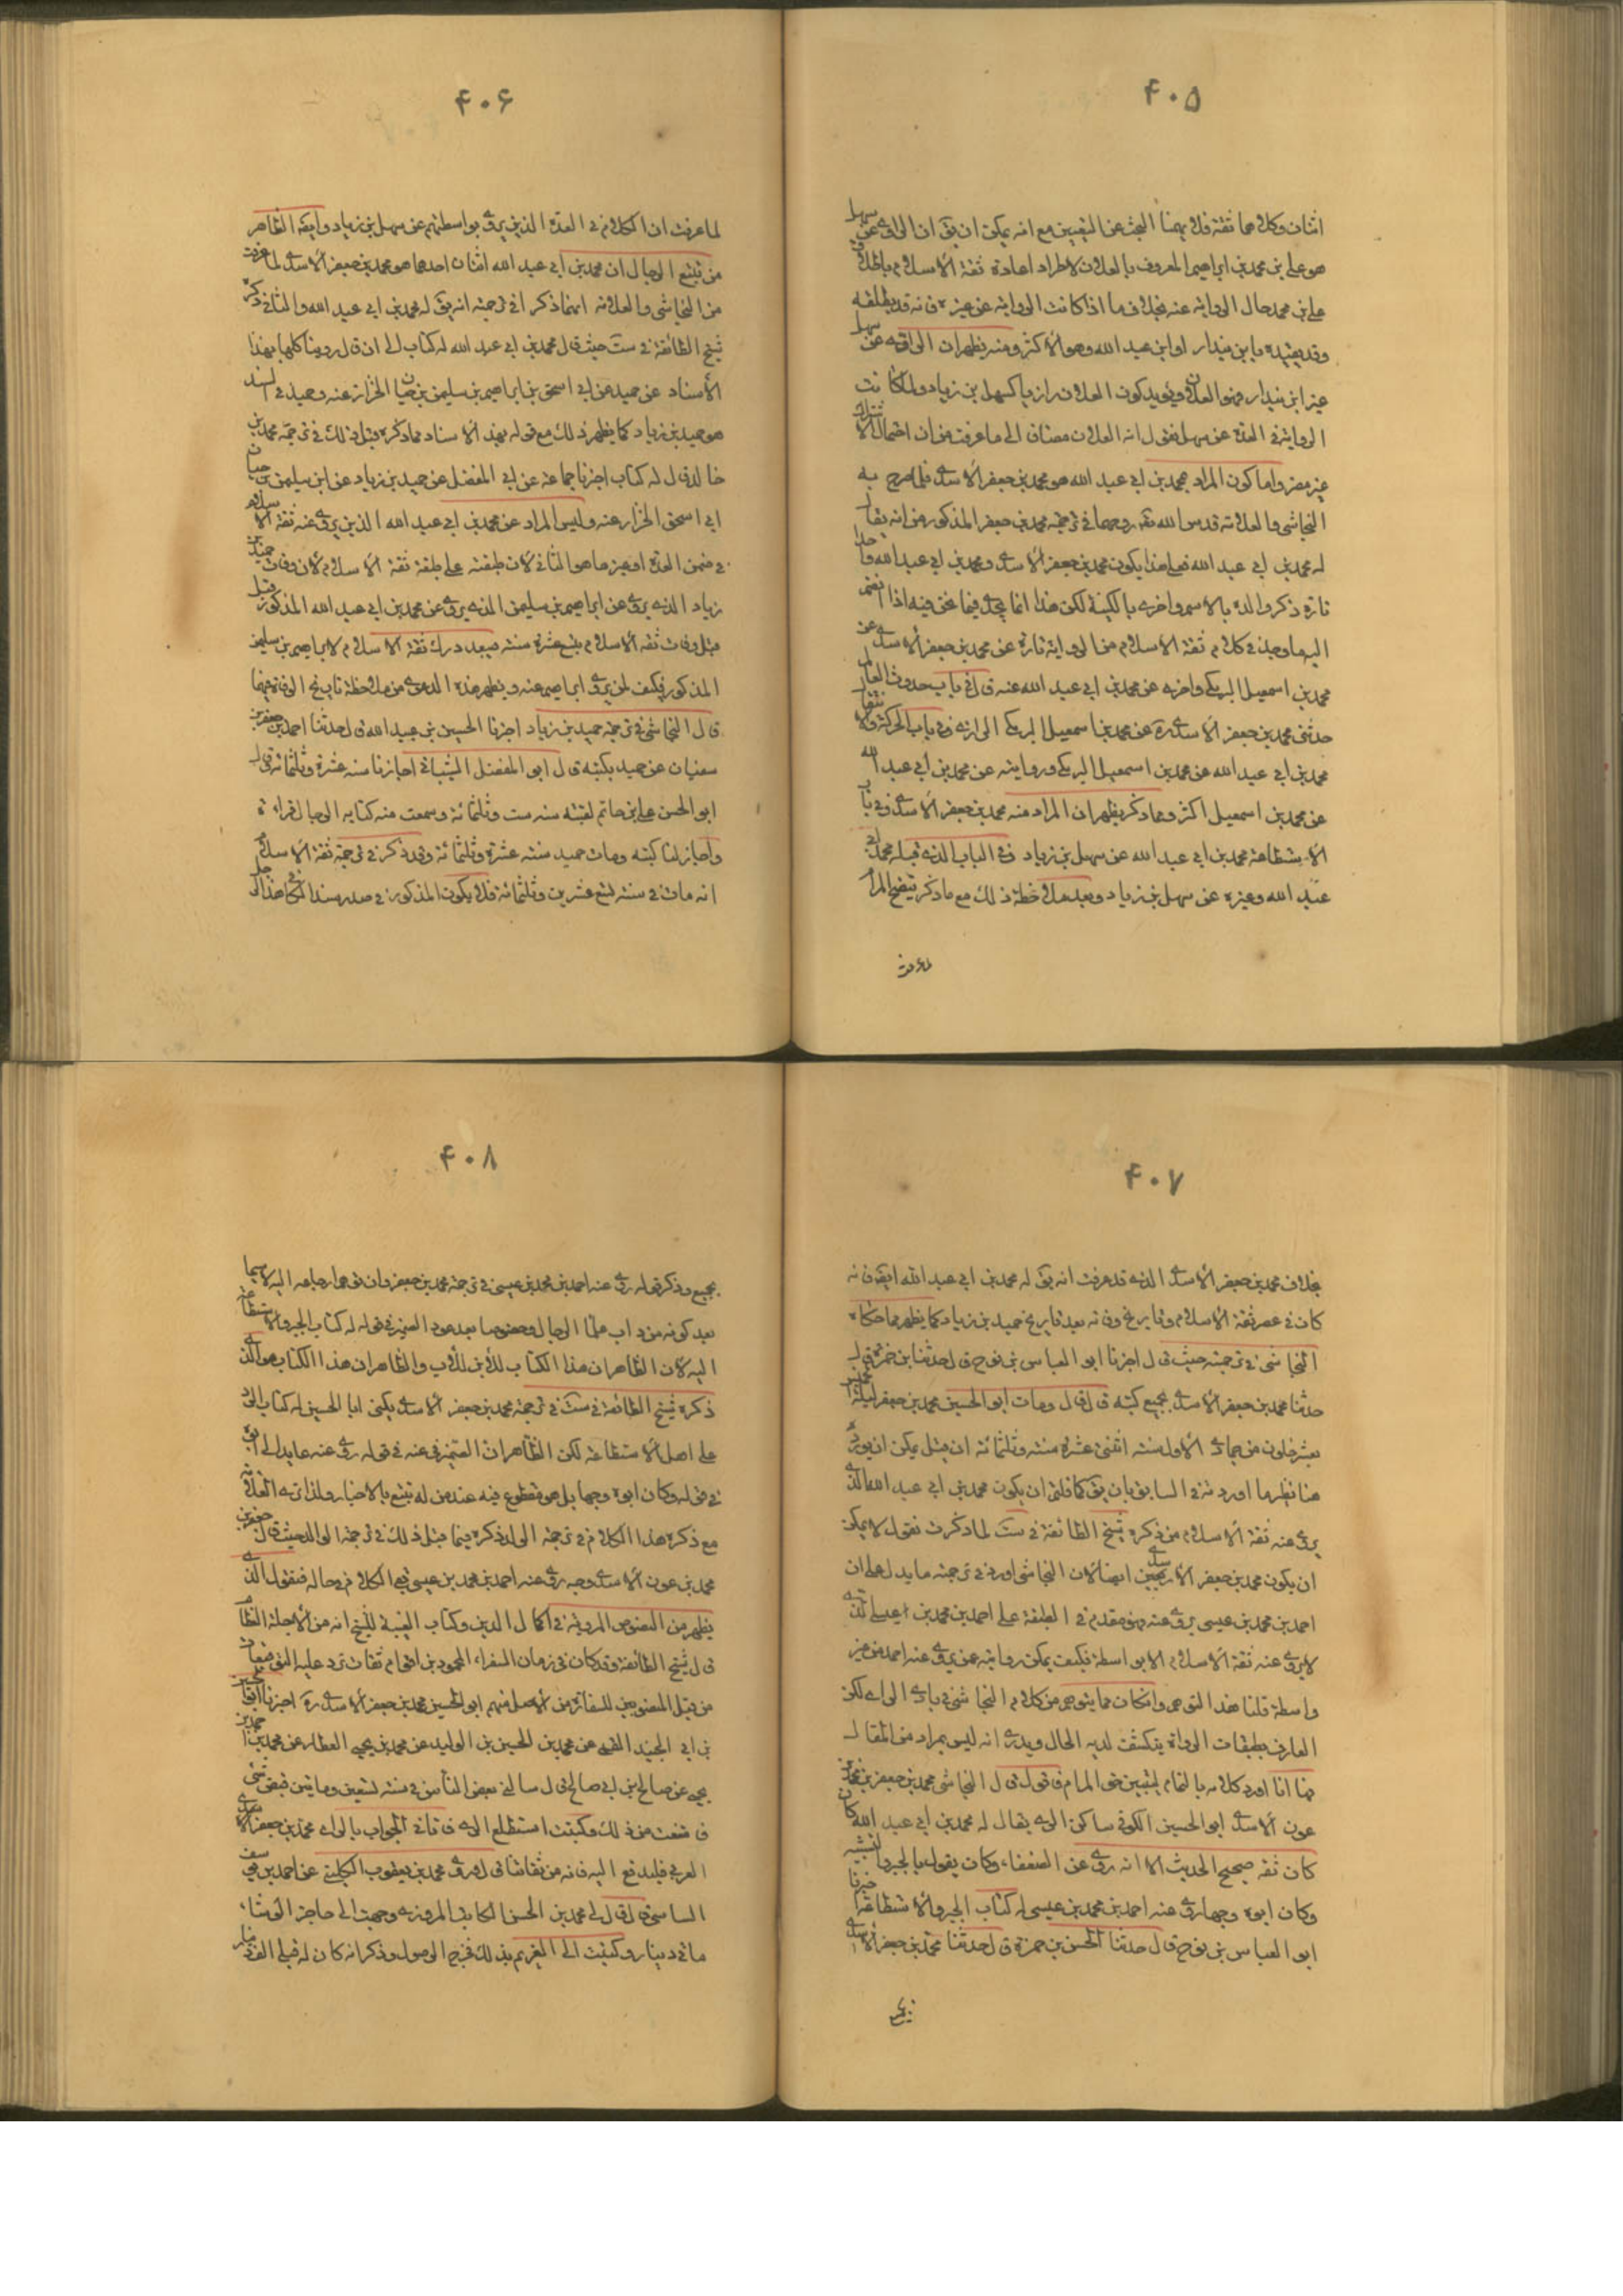 ۴۰۵
اثنان وكلاهما ثقة فلا يهمنا البحث عن التعيين مع انه يمكن ان يق ان الراوى عن سهل
هو على بن محمد بن ابراهيم المعروف بالعلان لاطراد عادة ثقة الاسلام باطلاق
على بن محمد حال الرواية عنه بخلاف ما اذا كانت الرواية عن غيره فانه قد يطلقه
وقد يقيده بابن بندار او ابن عبد الله وهو الاكثر ومنه يظهر ان الراوى عن سهل
غير ابن بندار فهو العلان ويؤيد كون العلان رازيا كسهل بن زياد ولما كانت
الرواية فى العدة عن سهل نقول انه العلان مضاف الى ما عرفت من ان احتمال الاشتراك
غير مضر واما كون المراد بمحمد بن ابى عبد الله هو محمد بن جعفر الاسدى فلما صرح به
النجاشى والعلامة قدس الله تعه روحهما فى ترجمة محمد بن جعفر المذكور من انه يقال
له محمد بن ابى عبد الله فعلى هذا يكون محمد بن جعفر الاسدى ومحمد بن ابى عبد الله واحدا
تارة ذكر والده بالاسم واخرى بالكنية لكن هذا انما يجدى فيما نحن فيه اذا انضم
اليه ما وجد فى كلام ثقة الاسلام من الرواية تارة عن محمد بن جعفر الاسدى عن
محمد بن اسمعيل البرمكى واخرى عن محمد بن ابى عبد الله عنه قال فى باب حدوث العالم
حدثنى محمد بن جعفر الاسدى ره عن محمد بن اسمعيل البرمكى الرازى وفى باب الحركة والانتقال
محمد بن ابى عبد الله عن محمد بن اسمعيل البرمكى وروايته عن محمد بن ابى عبد الله
عن محمد بن اسمعيل اكثر ومما ذكر يظهر ان المراد منه محمد بن جعفر الاسدى وفى باب
الاستطاعة محمد بن ابى عبد الله عن سهل بن زياد وفى الباب الذى قبله محمد بن ابى
عبد الله وغيره عن سهل بن زياد وبعد ملاحظة ذلك مع ما ذكر يتضح المرام
۴۰۶
لما عرفت ان الكلام فى العدة الذين يروى بواسطتهم عن سهل بن زياد وايضه الظاهر
من تتبع الرجال ان محمد بن ابى عبد الله اثنان احدهما هو محمد بن جعفر الاسدى لما عرفت
من النجاشى والعلامة انهما ذكرا فى ترجمته انه يق له محمد بن ابى عبد الله والثانى ذكره
شيخ الطائفة فى ست حيث قال محمد بن ابى عبد الله له كتاب الى ان قال روينا كلها بهذا
الاسناد عن حميد عن ابى اسحق بن ابراهيم بن سليمن بن حيان الخزاز عنه وحميد فى السند
هو حميد بن زياد كما يظهر ذلك مع قوله بهذا الاسناد مما ذكره قبل ذلك فى ترجمة محمد بن
خالد قال له كتاب اخبرنا جماعة عن ابى المفضل عن حميد بن زياد عن ابن سليمن بن حيان
ابى اسحق الخزاز عنه وليس المراد عن محمد بن ابى عبد الله الذين يروى عنه ثقة الاسلام
فى ضمن العدة او غيرها هو الثانى لان طبقته على طبقة ثقة الاسلام لان وفات حميد بن
زياد الذى يروى عن ابراهيم بن سليمن الذى يروى عن محمد بن ابى عبد الله المذكور قبل
قبل وفات ثقة الاسلام بتسع عشرة سنة فيبعد درك ثقة الاسلام لابراهيم بن سليمن
المذكور فكيف لمن يروى ابراهيم عنه ويظهر هذه الدعوى من ملاحظة تاريخ الوفاة فيهما
قال النجاشى فى ترجمة حميد بن زياد اخبرنا الحسين بن عبيد الله قال حدثنا احمد بن جعفر بن
سفيان عن حميد بكتبه قال ابو المفضل الشيبانى اجازنا سنة عشرة وثلثمائة قال
ابو الحسن على بن حاتم لقيته سنة ست وثلثمائة وسمعت منه كتابه الرجال قراءة
واجاز لنا كتبه ومات حميد سنة عشرة وثلثمائة وقد ذكر فى ترجمة ثقة الاسلام
انه مات فى سنة تسع عشرين وثلثمائة فلا يكون المذكور فى صدر سند الكافى هذا الرجل
۴۰۷
بخلاف محمد بن جعفر الاسدى الذى قد عرفت انه يق له محمد بن ابى عبد الله ايضه فانه
كان فى عصر ثقة الاسلام وتاريخ وفاته بعد تاريخ حميد بن زياد كما يظهر مما حكاه
النجاشى فى ترجمته حيث قال اخبرنا ابو العباس بن نوح قال حدثنا بن حمزة قال
حدثنا محمد بن جعفر الاسدى بجميع كتبه قال قال ومات ابو الحسين محمد بن جعفر ليلة الخميس
بعشر خلون من جمادى الاولى سنة اثنتى عشرة سنة وثلثمائة ان قيل يمكن ان يورد
هنا نظير ما اوردته فى السابق بان يق كما قلتم ان يكون محمد بن ابى عبد الله الذى
يروى عنه ثقة الاسلام من ذكره شيخ الطائفة فى ست لما ذكرت نقول لا يمكن
ان يكون محمد بن جعفر الاسدى ايضا لان النجاشى اورد فى ترجمته ما يدل على ان
احمد بن محمد بن عيسى يروى عنه وهو مقدم فى الطبقة على احمد بن محمد بن عيسى الذى
لا يروى عنه ثقة الاسلام الا بواسطة فكيف يمكن روايته عن يروى عنه احمد من غير
واسطة قلنا هذا التوهم وان كان مما يتوهم من كلام النجاشى فى بادى الراى لكن
العارف بطبقات الرواة ينكشف لديه الحال ويدرى انه ليس بمراد من المقال
فها انا اورد كلامه بالتمام ليتبين حق المرام فاقول قال النجاشى محمد بن جعفر بن محمد بن
عون الاسدى ابو الحسين الكوفى ساكن الرى يقال له محمد بن ابى عبد الله كان
كان ثقة صحيح الحديث الا انه روى عن الضعفاء وكان يقول بالجبر والتشبيه
وكان ابوه وجها روى عنه احمد بن محمد بن عيسى له كتاب الجبر والاستطاعة اخبرنا
ابو العباس بن نوح قال حدثنا الحسن بن حمزة قال حدثنا محمد بن جعفر الاسدى
۴۰۸
بجميع وذكر قوله روى عنه احمد بن محمد بن عيسى فى ترجمة محمد بن جعفر وان توهم ارجاعه اليه لا سيما
بعد كونه من داب علما الرجال وخصوصا بعد عود الضمير فى قوله له كتاب الجبر والاستطاعة
اليه لان الظاهر ان هذا الكتاب للابن لا للاب والظاهر ان هذا الكتاب هو الذى
ذكره شيخ الطائفة فى ست فى ترجمة محمد بن جعفر الاسدى يكنى ابا الحسين له كتاب الرد
على اهل الاستطاعة لكن الظاهر ان الضمير فى عنه فى قوله روى عنه عايد الى ابوه
فى قوله وكان ابوه وجها بل هو مقطوع فيه عند من له تتبع بالاخبار ولذا ترى العلامة
مع ذكره هذا الكلام فى ترجمة الولد ذكره فيما قبل ذلك فى ترجمة الوالد حيث قال جعفر بن
محمد بن عون الاسدى وجه روى عنه احمد بن محمد بن عيسى بقى الكلام فى حاله فنقول الذى
يظهر من النصوص المروية فى اكمال الدين وكتاب الغيبة للشيخ انه من الاجلة الثقات
قال شيخ الطائفة وقد كان فى زمان السفراء المحمودين اقوام ثقات ترد عليهم التوقيعات
من قبل المنصوبين للسفارة من الاصل منهم ابو الحسين محمد بن جعفر الاسدى ره اخبرنا ابو الحسين
بن ابى الجيد القمى عن محمد بن الحسن بن الوليد عن محمد بن يحيى العطار عن محمد بن احمد بن
يحيى عن صالح بن ابى صالح قال سالنى بعض الناس فى سنة تسعين ومايتين قبض شىء
فامتنعت من ذلك وكتبت استطلع الراى فاتانى الجواب بالراى محمد بن جعفر الاسدى
العربى فليدفع اليه فانه من ثقاتنا قال وروى محمد بن يعقوب الكلينى عن احمد بن يوسف
الساسى قال قال لى محمد بن الحسن الكاتب المروزى وجهت الى حاجز الوشاء
مائتى دينار وكتبت الى الغريم بذلك فخرج الوصول وذكر انه كان له قبلى الف دينار